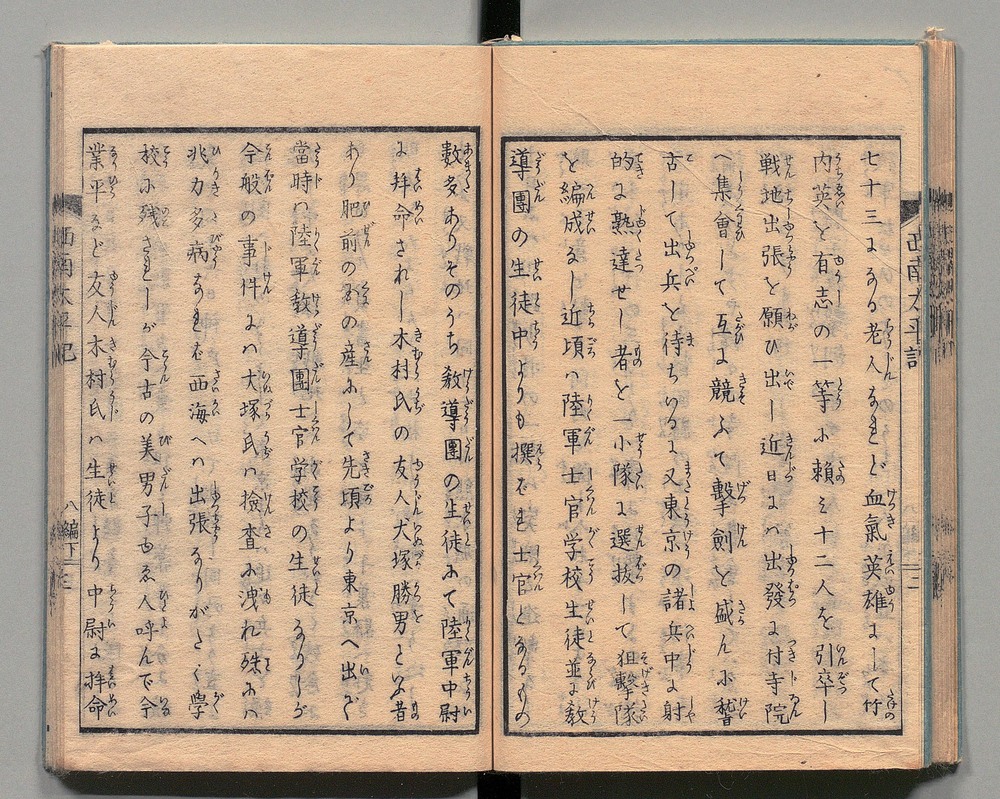 七十三になる老人なれど血氣英雄にして竹
内英を有志の一等に賴み十二人を引卒し
戦地出張を願ひ出し近日には出發に付寺院
へ集會して互に競ふて擊劍を盛んに稽
古して出兵を待ちゐる又東京の諸兵中に射
的に熟達せし者を一小隊に選抜して狙擊隊
を編成なし近頃は陸軍士官学校生徒並に敎
導團の生徒中よりも撰ばれ士官となるもの
西南太平記
數多ありそのうち敎導團の生徒にて陸軍中尉
に拜命されし木村氏の友人犬塚勝男といふ者
あり肥前の国の産にして先頃より東京へ出で
當時は陸軍敎導團士官学校の生徒なりしが
今般の事件には犬塚氏は撿査に洩れ殊には
非力多病なれば西海へは出張なりがたく學
校に残されしが今古の美男子ゆゑ人呼んで今
業平など友人木村氏は生徒より中尉に拜命
西南太平記 八編下 三